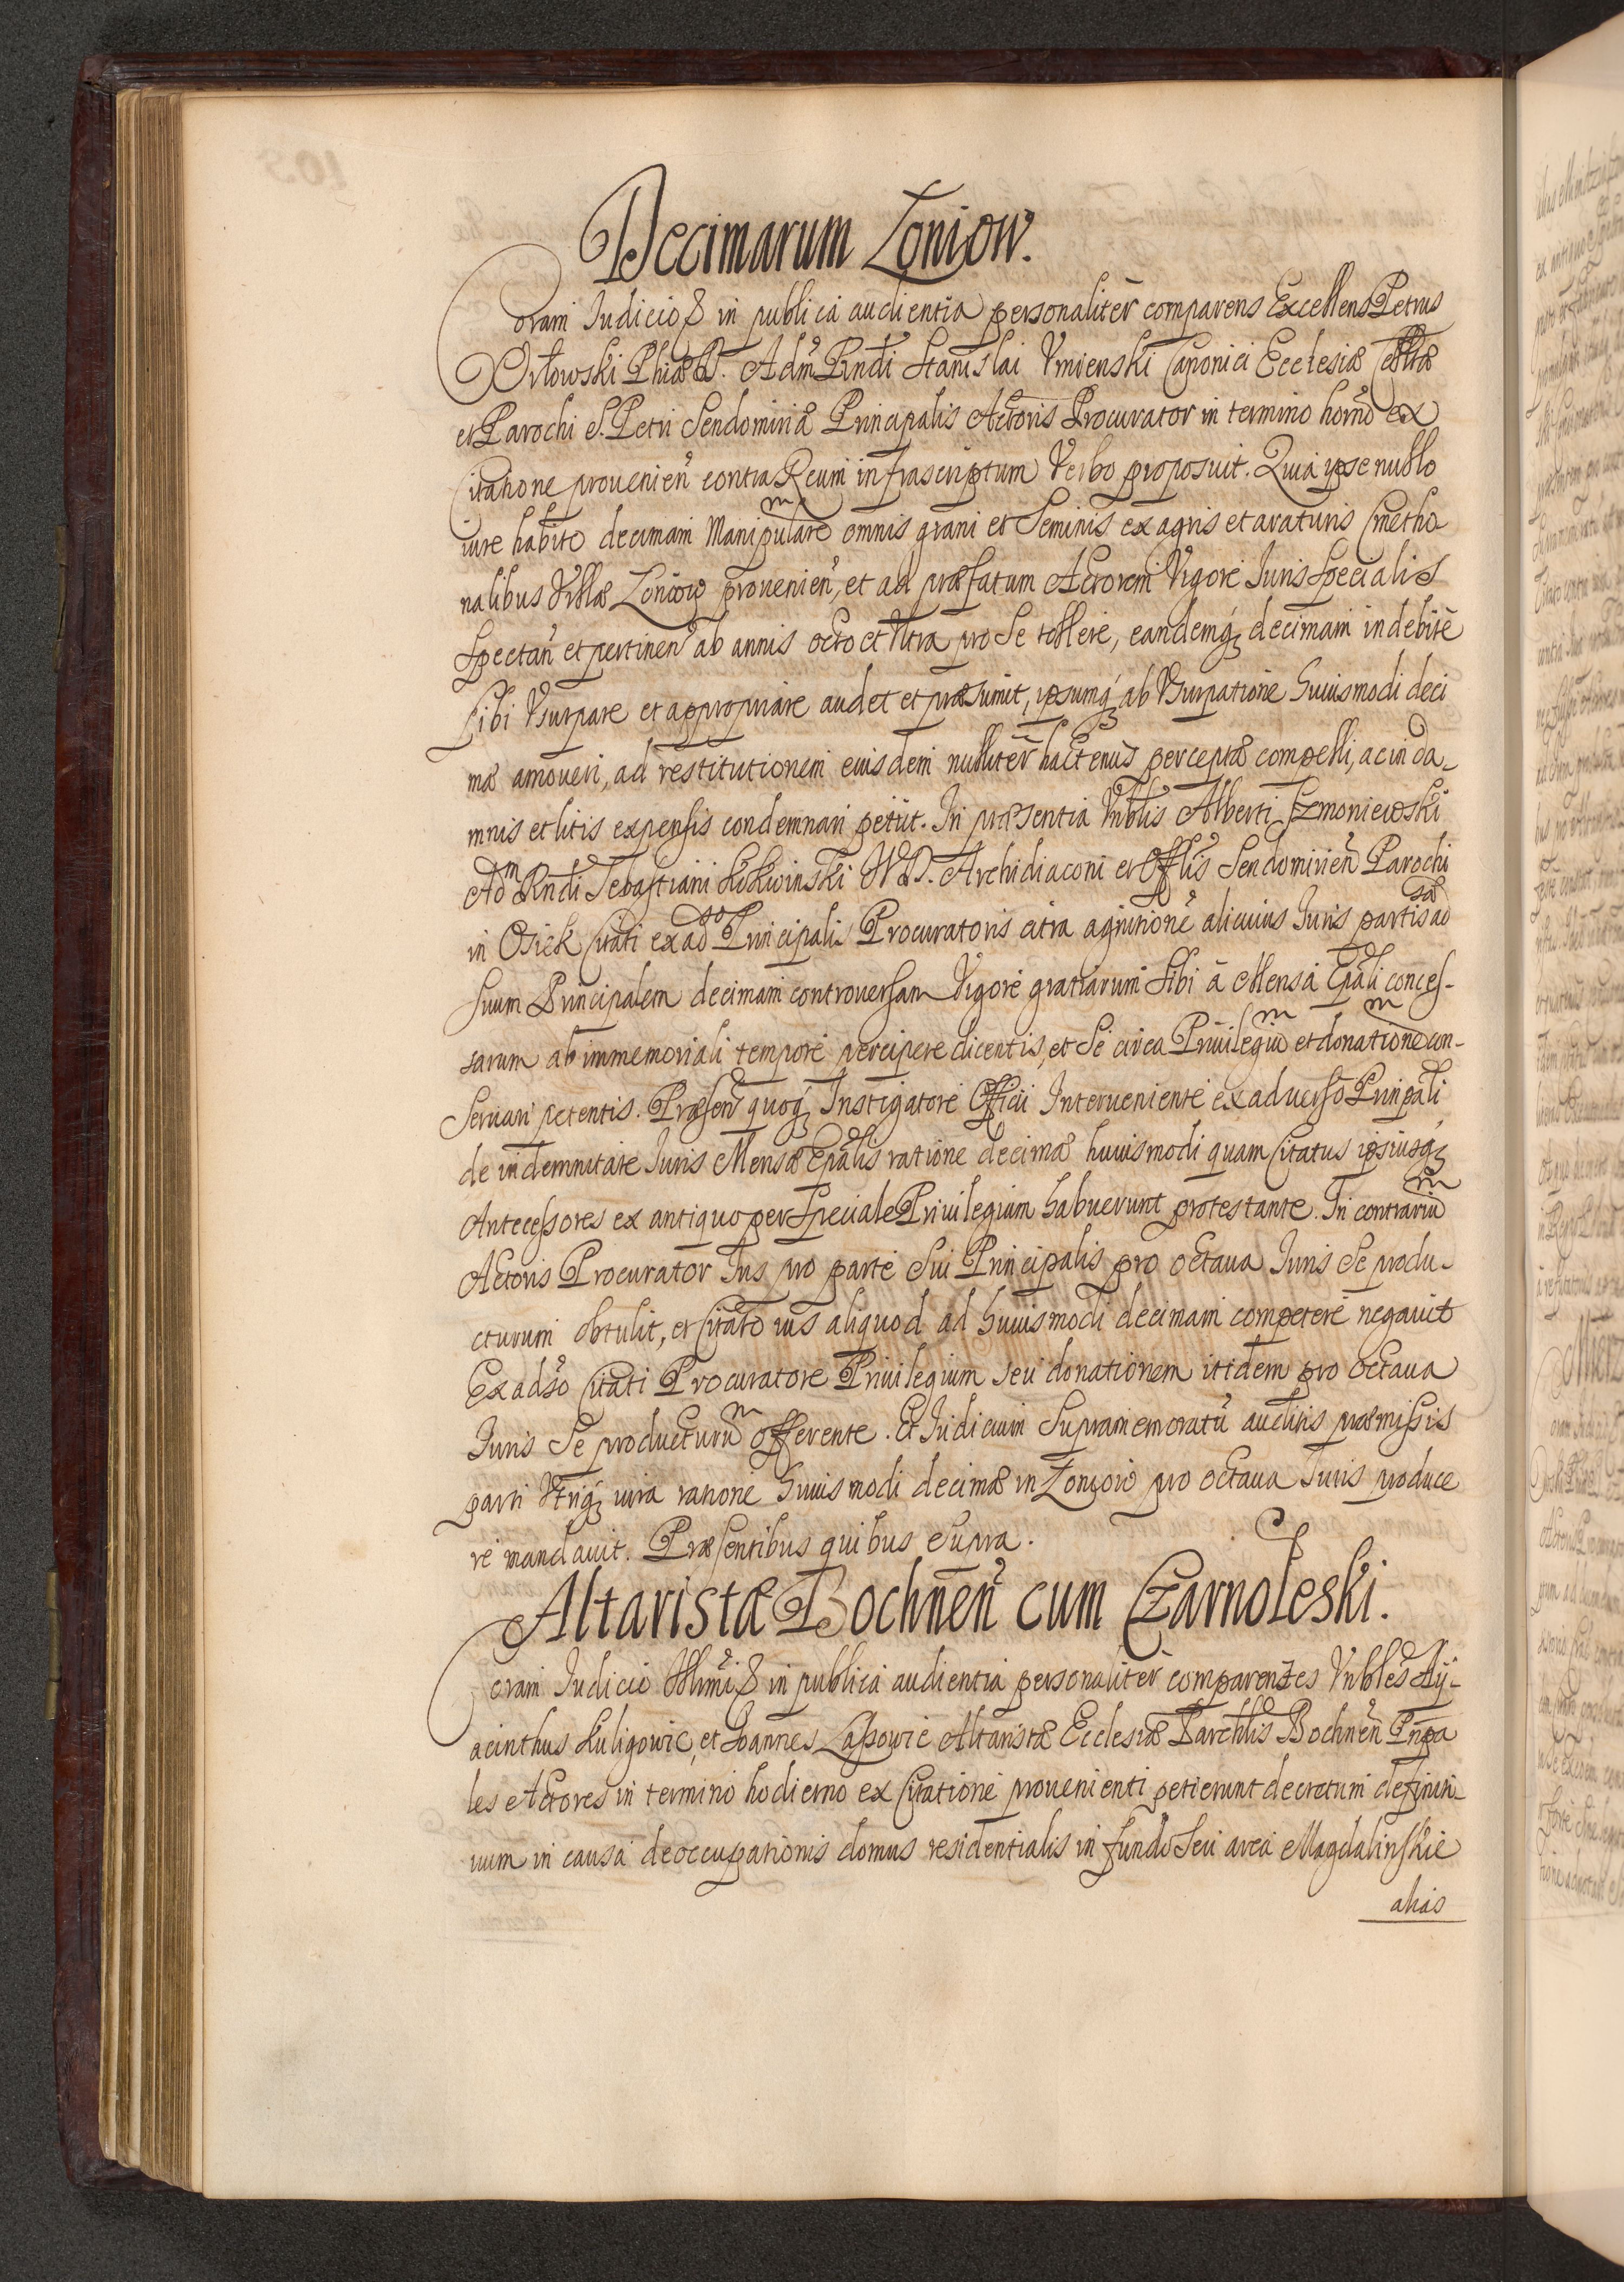 Decimarum Łoniow.
Coram Iudicio & in publica audientia personaliter comparens Excellens Petrus
Orłowski Phiæ D. Adm Rndi Stanislai Vmienski Canonici Ecclesiæ Collæ
et Parochi S. Petri Sendomiriæ Principalis Actoris Procurator in termino horno ex
Citatione prouenien contra Reum infrascriptum Verbo proposuit. Quia ipse nullo
iure habito decimam Manipularem omnis grani et Seminis ex agris et araturis Cmetho
nalibus Villæ Łoniow prouenien, et ad præfatum Actorem Vigore Iuris Specialis
Spectan et pertinen ab annis octo et Vltra pro Se tollere, eandemq decimam indebite
Sibi Vsurpare et appropriare audet et præsumit, ipsumq ab Vsurpatione huiusmodi deci
mæ amoueri, ad restitutionem eiusdem nulliter hactenus perceptæ compelli, ac in da-
mnis et litis expensis condemnari petiit. In præsentia Vnblis Alberti Szmoniewski
Adm Rndi Sebastiani Kokwinski I.V.D. Archidiaconi et Offlis Sendomirien Parochi
in Osiek Citati ex adso Principalis Procuratoris citra agnitione alicuius Iuris partis adsæ
Suum Principalem decimam controuersam Vigore gratiarum Sibi a Mensa Epali conces-
sarum ab immemoriali tempore percipere dicentis, et Se circa Priuilegium et donationem con-
Seruari petentis. Præsen quoq Instigatore Officii Interueniente ex aduerso Prinpali
de indemnitate Iuris Mensæ Epalis ratione decimæ huiusmodi quam Citatus ipsiusq
Antecessores ex antiquo per Speciale Priuilegium habuerunt protestante. In contrarium
Actoris Procurator Ius pro parte Sui Principalis pro octaua Iuris Se produ-
cturum obtulit, et Citato ius aliquod ad huiusmodi decimam competere negauit
Ex adso Citati Procuratore Priuilegium seu donationem itidem pro octaua
Iuris Se producturum offerente. Et Iudicium Supramemoratu auditis præmissis
parti Vtriq iura ratione huiusmodi decimæ in Łoniow pro octaua Iuris produce
re mandauit. Præsentibus quibus supra.
Altaristæ Bochnen cum Czarnoleski.
Coram Iudicio Illmi & in publica audientia personaliter comparentes Vnbles Hy-
acinthus Kuligowic, et Ioannes Lapowic Altaristæ Ecclesiæ Parchlis Bochnen Prnpa
les Actores in termino hodierno ex Citatione prouenienti petierunt decretum definiti-
uum in causa de occupationis domus residentialis in fundo Seu area Magdalinskie
alias